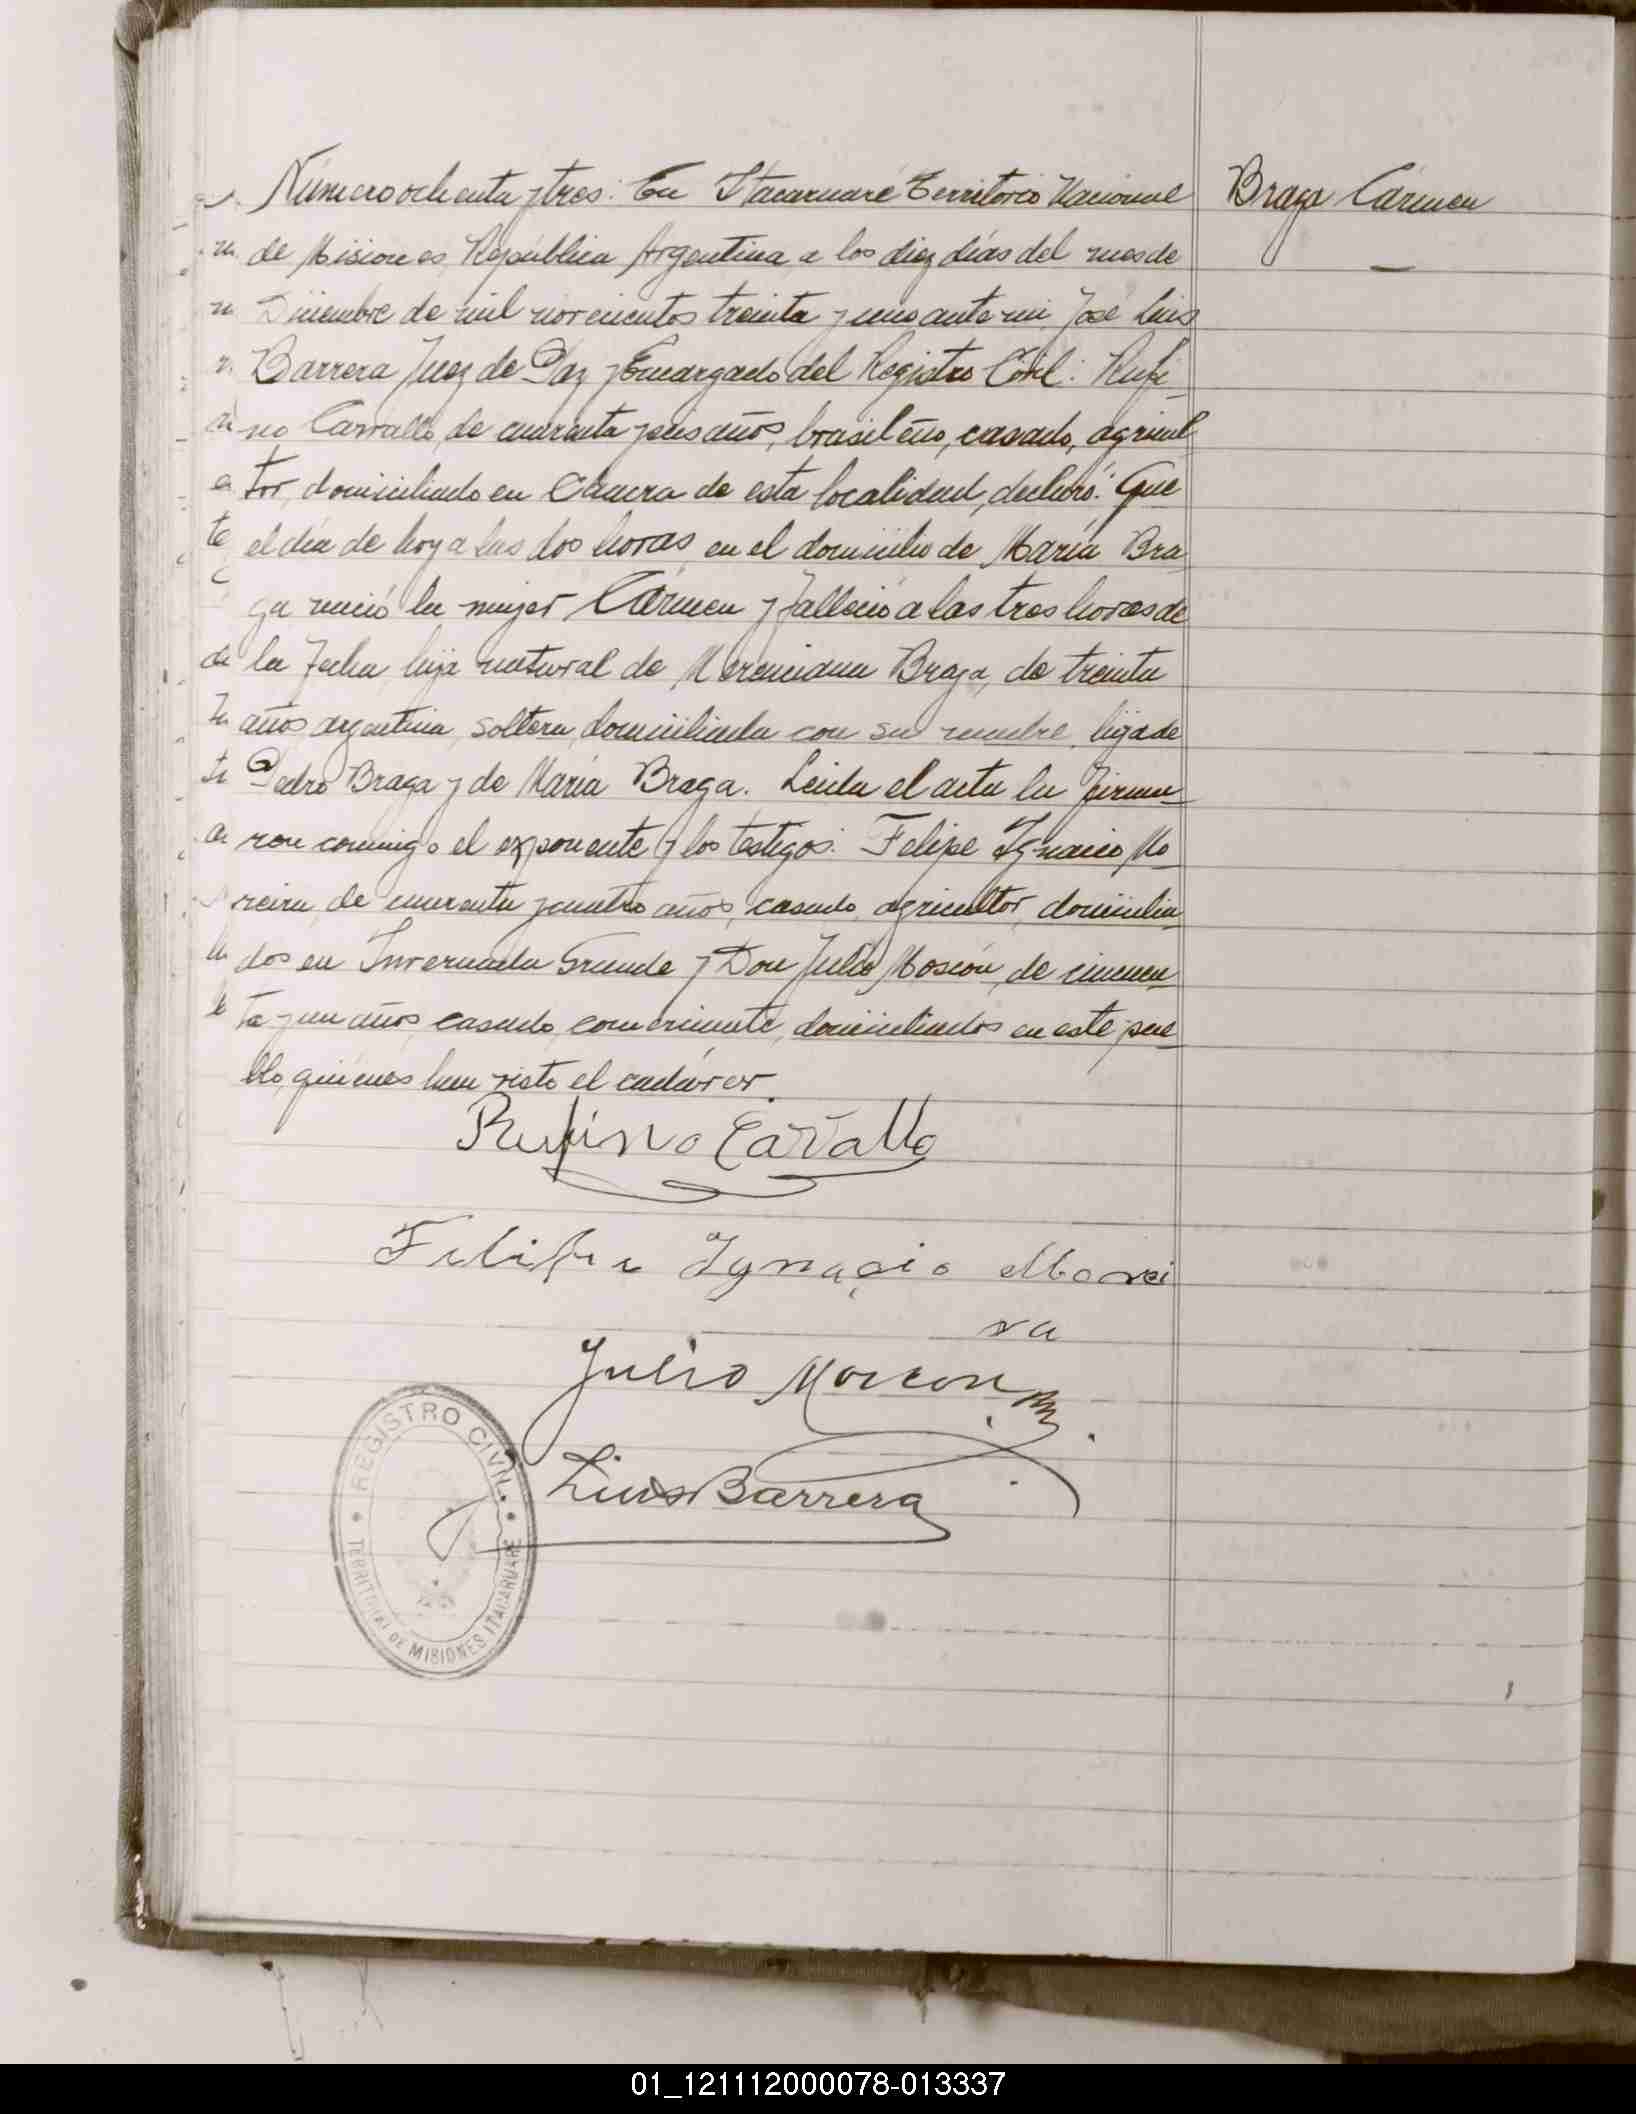 Número ochenta y tres: En Itacaruaré Territorio Nacional
Braga Cármen
de Misiones República Argentina a los diez días del mes de
Diciembre de mil novecientos treinta y uno ante mi, José Luis
Barrera Juez de Paz y Encargado del Registro Civil: Rufi-
no Carvallo, de cuarenta y seis años, brasileño, casado, agricul-
tor, domiciliado en de esta localidad, declaró: Que
el día de hoy a las dos horas, en el domicilio de María Bra-
ga nació la mujer Cármen y falleció a las tres horas de
la fecha, hija natural de Merenciana Braga, de treinta
años, argentina, soltera, domiciliada con su madre, hija de
Pedro Braga y de María Braga. Leida el acta la firma-
ron conmigo el exponente y los testigos: Felipe Ignacio Mo-
reira, de cuarenta y cuatro años, casado, agricultor, domicilia-
dos en Invernada Grande y Don Julio Moscón, de cincuen-
ta y un años, casado, comerciante, domiciliados en este pue-
blo, quiénes han visto el cadáver.
Rufino Carvallo
Felipe Ignacio Morei
ra
Julio Moscon
J Luis Barrera
REGISTRO CIVIL
TERRITORIO DE MISIONES ITACARUARE
01_121112000078-013337